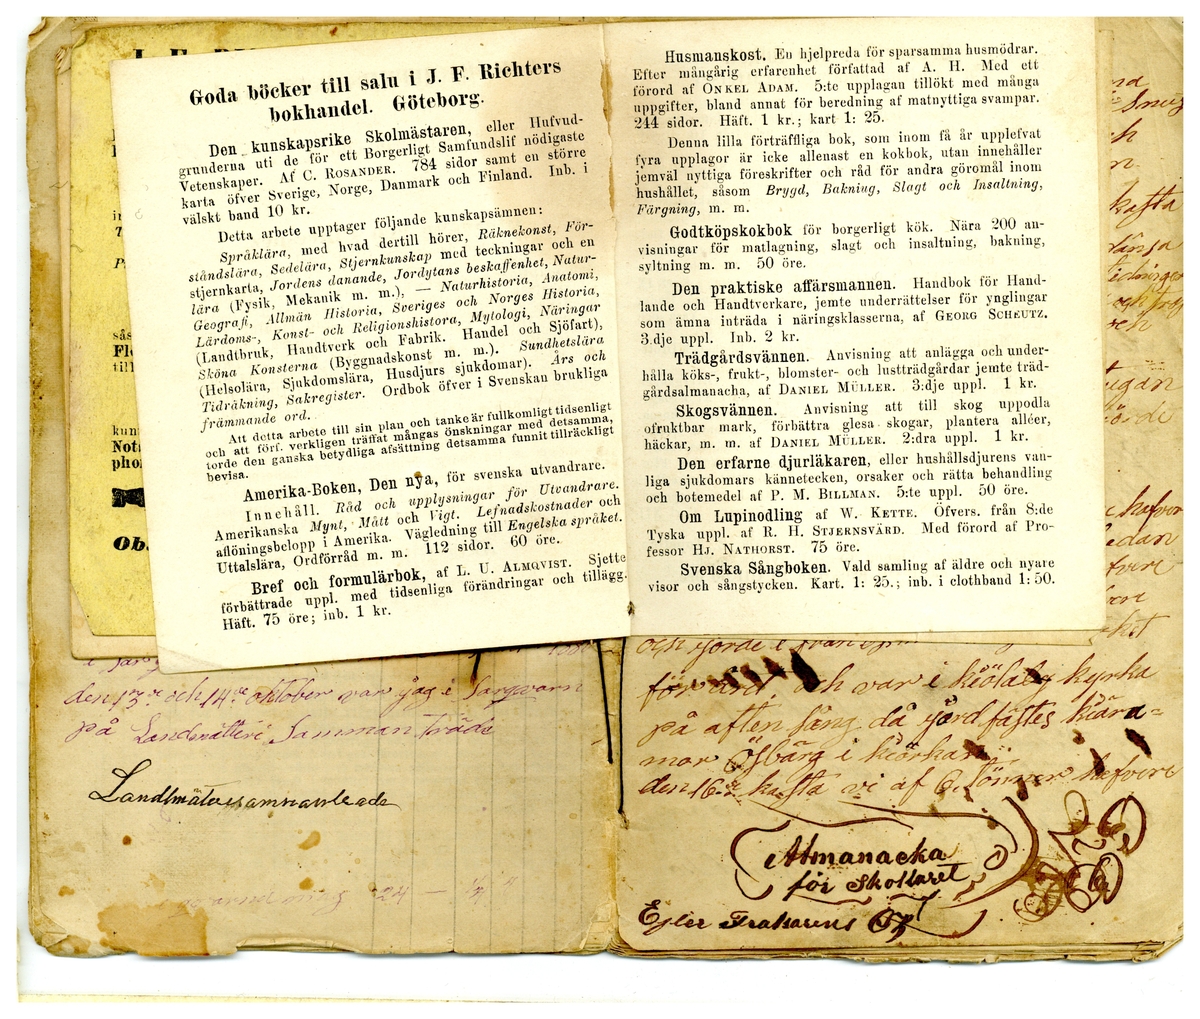 Goda böcker till salu i J. F. Richters
bokhandel. Göteborg.
Den kunskapsrike Skolmästaren, eller Hufvud-
grunderna uti de för ett Borgerligt Samfundslif nödigaste
Vetenskaper. Af C. ROSANDER. 784 sidor samt en större
karta öfver Sverige, Norge, Danmark och Finland. Inb. i
välskt band 10 kr.
Detta arbete upptager följande kunskapsämnen:
Språklära, med hvad dertill hörer, Räknekonst, För-
ståndslära, Sedelära, Stjernkunskap med teckningar och en
stjernkarta, Jordens danande, Jordytans beskaffenhet, Natur-
lära (Fysik, Mekanik m. m.), — Naturhistoria, Anatomi,
Geografi, Allmän Historia, Sveriges och Norges Historia,
Lärdoms-, Konst- och Religionshistora, Mytologi, Näringar
(Landtbruk, Handtverk och Fabrik. Handel och Sjöfart),
Sköna Konsterna (Byggnadskonst m. m.). Sundhetslära
(Helsolära, Sjukdomslära, Husdjurs sjukdomar). Års och
Tidräkning, Sakregister. Ordbok öfver i Svenskan brukliga
främmande ord.
Att detta arbete till sin plan och tanke är fullkomligt tidsenligt
och att förf. verkligen träffat mångas önskningar med detsamma,
torde den ganska betydliga afsättning detsamma funnit tillräckligt
bevisa.
Amerika-Boken, Den nya, för svenska utvandrare.
Innehåll. Råd och upplysningar för Utvandrare.
Amerikanska Mynt, Mått och Vigt. Lefnadskostnader och
aflöningsbelopp i Amerika. Vägledning till Engelska språket.
Uttalslära, Ordförråd m. m. 112 sidor. 60 öre.
Bref och formulärbok, af L. U. ALMQVIST. Sjette
förbättrade uppl. med tidsenliga förändringar och tillägg.
Häft. 75 öre; inb. 1 kr.
Husmanskost. En hjelpreda för sparsamma husmödrar.
Efter mångårig erfarenhet författad af A. H. Med ett
förord af ONKEL ADAM. 5:te upplagan tillökt med många
uppgifter, bland annat för beredning af matnyttiga svampar.
244 sidor. Häft. 1 kr.; kart 1: 25.
Denna lilla förträffliga bok, som inom få år upplefvat
fyra upplagor är icke allenast en kokbok, utan innehåller
jemväl nyttiga föreskrifter och råd för andra göromål inom
hushållet, såsom Brygd, Bakniug, Slagt och Insaltning,
Färgning, m. m.
Godtköpskokbok för borgerligt kök. Nära 200 an-
visningar för matlagning, slagt och insaltning, bakning,
syltning m. m. 50 öre.
Den praktiske affärsmannen. Handbok för Hand-
lande och Handtverkare, jemte underrättelser för ynglingar
som ämna inträda i näringsklasserna, af GEORG SCHEUTZ.
3.dje uppl. Inb. 2 kr.
Trädgårdsvännen. Anvisning att anlägga och under-
hålla köks-, frukt-, blomster- och lustträdgårdar jemte träd-
gårdsalmanacha, af DANIEL MÜLLER. 3:dje uppl. 1 kr.
Skogsvännen. Anvisning att till skog uppodla
ofruktbar mark, förbättra glesa skogar, plantera alléer,
häckar, m. m. af DANIEL MÜLLER. 2:dra uppl. 1 kr.
Den erfarne djurläkaren, eller hushållsdjurens van-
liga sjukdomars kännetecken, orsaker och rätta behandling
och botemedel af P. M. BILLMAN. 5:te uppl. 50 öre.
Om Lupinodling af W. KETTE. Öfvers. från 8:de
Tyska uppl. af R. H. STJERNSVÄRD. Med förord af Pro-
fessor HJ. NATHORST. 75 öre.
Svenska Sångboken. Vald samling af äldre och nyare
visor och sångstycken. Kart. 1: 25.; inb. i clothband 1: 50.
sås
Flo
till
kun
Not
pho
Obs
den 13de och 14de oktober var jag i
på Landmätteri Samman träde
24 —
kasta
och
och var i kiölaby kyrka
på aften sång då jordfästes
mor i
den 16de kasta vi af 6 tönner hafvere
Almanacka
för Skottåret
Efter